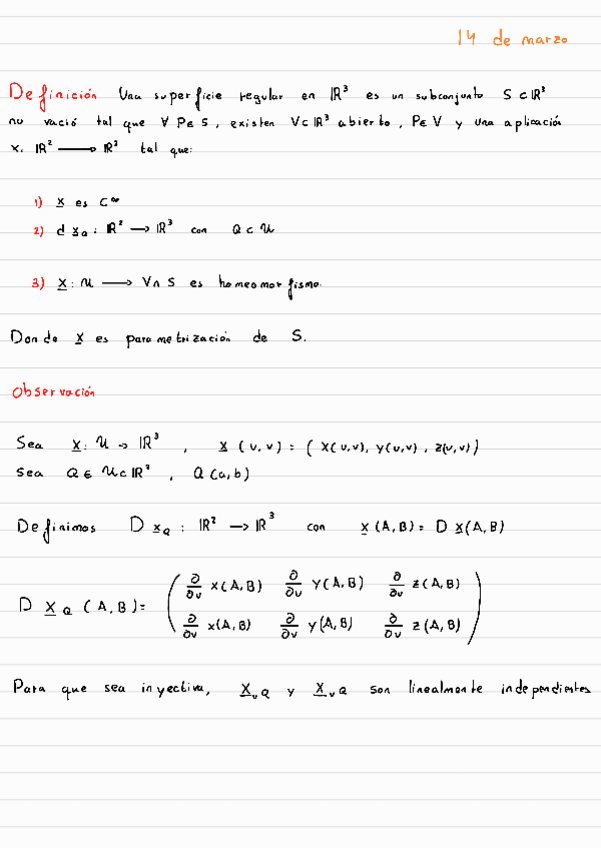 14 de marzo
Definición Una superficie regular en ℝ³ es un subconjunto S ⊂ ℝ³
no vació tal que ∀ P ∈ S, existen V ⊂ ℝ³ abierto, P ∈ V y una aplicación
x. ℝ² ⟶ ℝ³ tal que:
1) x̲ es C^∞
2) d x̲_Q : ℝ² ⟶ ℝ³ con Q ⊂ U
3) x̲ : U ⟶ V ∩ S es homeomorfismo.
Donde x̲ es parametrización de S.
Observación
Sea x̲ : U → ℝ³ , x̲ (u, v) = ( x(u,v), y(u,v) , z(u,v) )
Sea Q ∈ U ⊂ ℝ² , Q (a, b)
Definimos D x̲_Q : ℝ² ⟶ ℝ³ con x̲ (A, B) = D x̲(A, B)
D x̲_Q (A, B) = ( ∂/∂u x(A, B) ∂/∂u y(A, B) ∂/∂u z(A, B)
∂/∂v x(A, B) ∂/∂v y(A, B) ∂/∂v z(A, B) )
Para que sea inyectiva, x̲_u Q y x̲_v Q son linealmente independientes